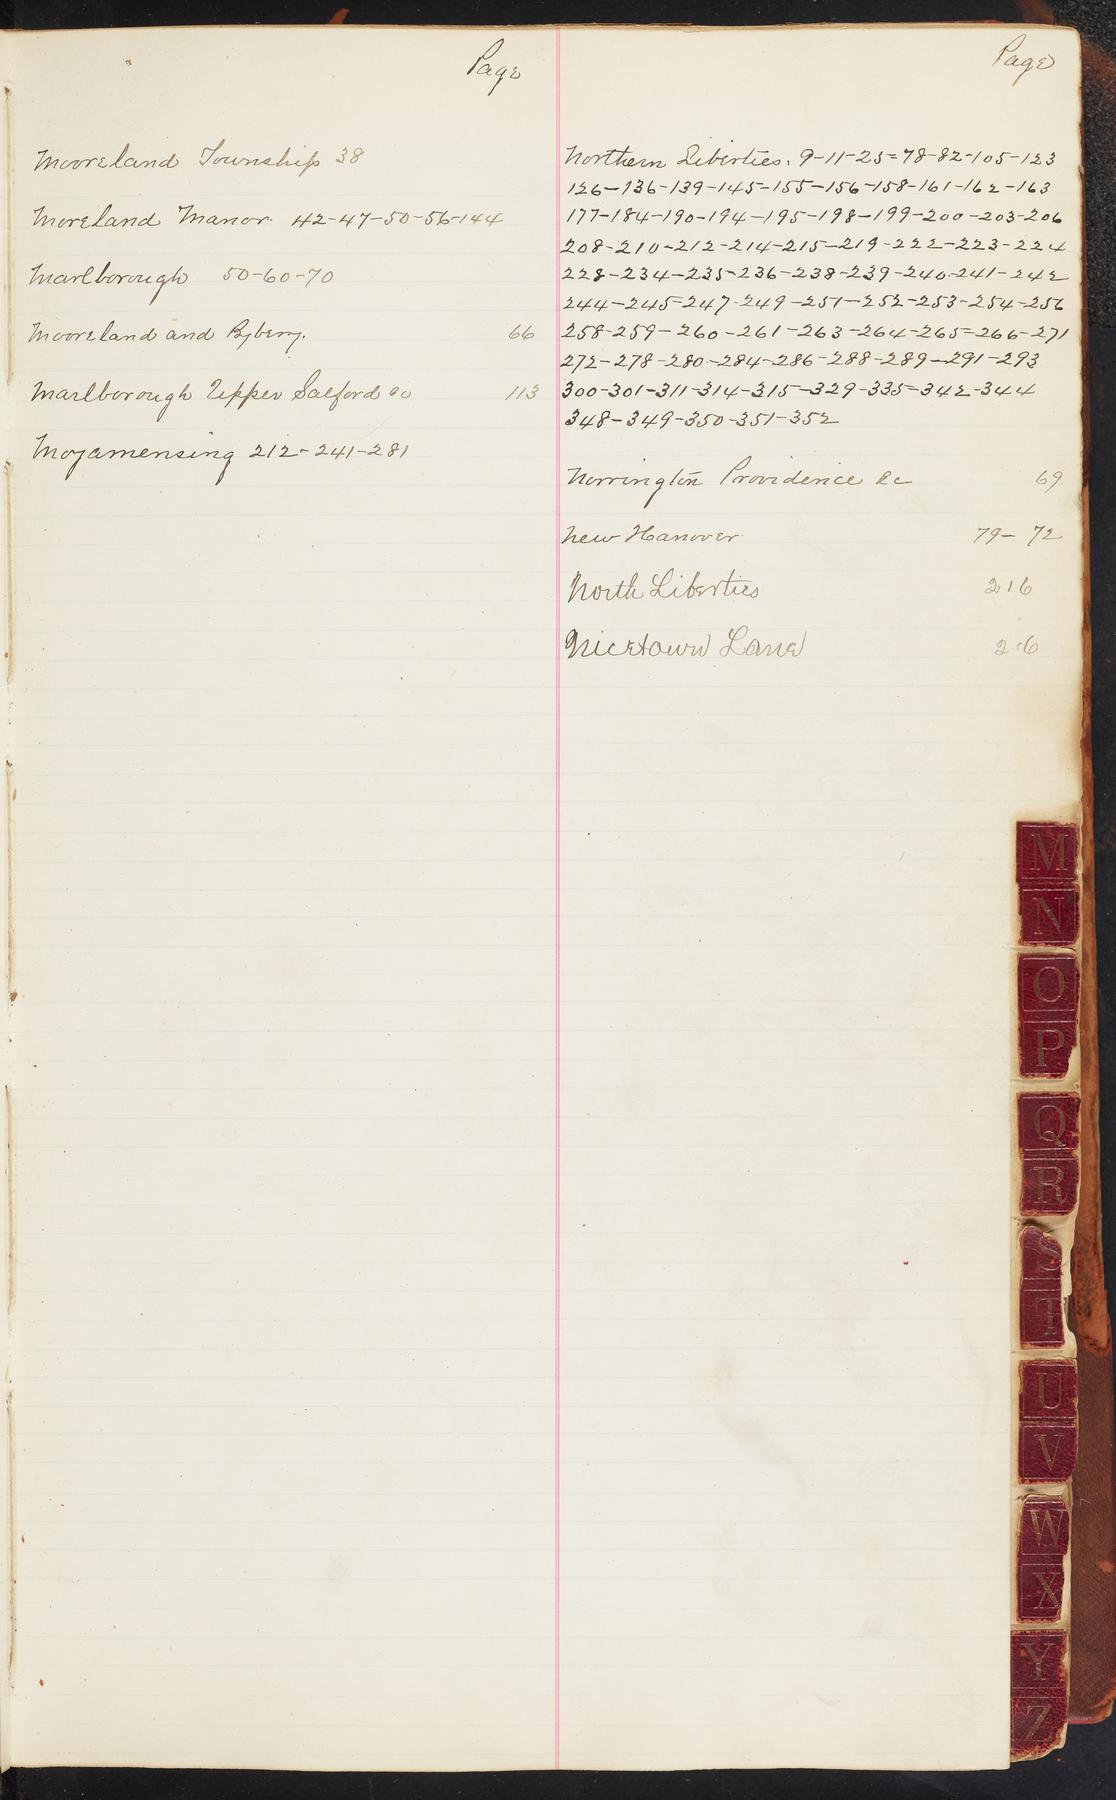 Page
Mooreland Township 38
Moreland Manor. 42-47-50-56-144
Marlborough 50-60-70
Mooreland and Byberry. 66
Marlborough Upper Salford &c 113
Moyamensing 212-241-281
Page
Northern Liberties. 9-11-25-78-82-105-123
126-136-139-145-155-156-158-161-162-163
177-184-190-194-195-198-199-200-203-206
208-210-212-214-215-219-222-223-224
228-234-235-236-238-239-240-241-242
244-245-247-249-251-252-253-254-256
258-259-260-261-263-264-265-266-271
272-278-280-284-286-288-289-291-293
300-301-311-314-315-329-335-342-344
348-349-350-351-352
Norrington Providence &c 69
New Hanover 79-72
North Liberties 216
Nicetown Lane 216
M
N
O
P
Q
R
S
T
U
V
W
X
Y
Z